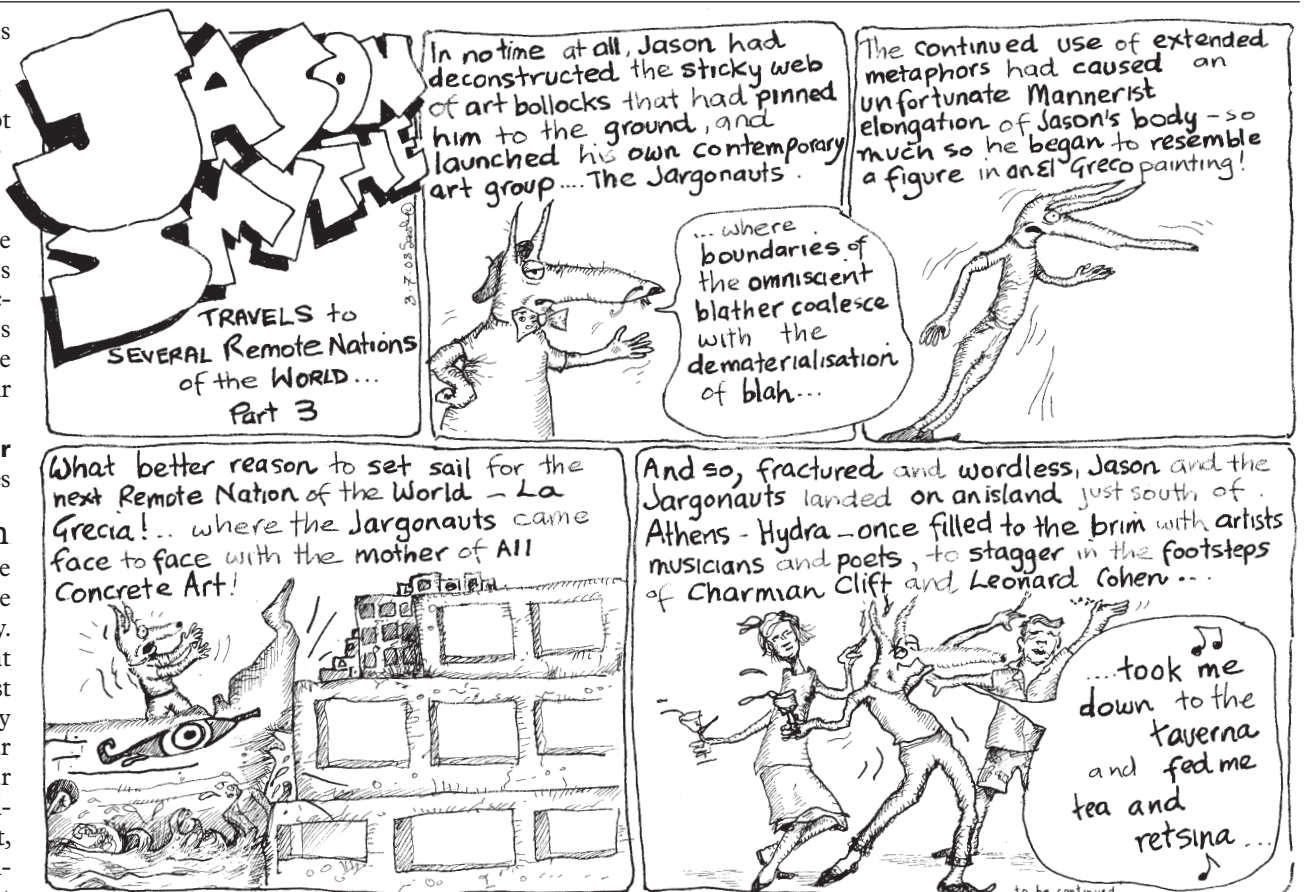 JASON
SMITHE
TRAVELS to
SEVERAL Remote Nations
of the WORLD...
Part 3
In no time at all, Jason had
deconstructed the sticky web
of art bollocks that had pinned
him to the ground, and
launched his own contemporary
art group.... The Jargonauts.
... where
boundaries of
the omniscient
blather coalesce
with the
dematerialisation
of blah...
The continued use of extended
metaphors had caused an
unfortunate Mannerist
elongation of Jason's body - so
much so he began to resemble
a figure in an El Greco painting!
What better reason to set sail for the
next Remote Nation of the World - La
Grecia!.. where the Jargonauts came
face to face with the mother of All
Concrete Art!
And so, fractured and wordless, Jason and the
Jargonauts landed on an island just south of
Athens - Hydra - once filled to the brim with artists
musicians and poets, to stagger in the footsteps
of Charmian Clift and Leonard Cohen...
....took me
down to the
taverna
and fed me
tea and
retsina...
to be continued